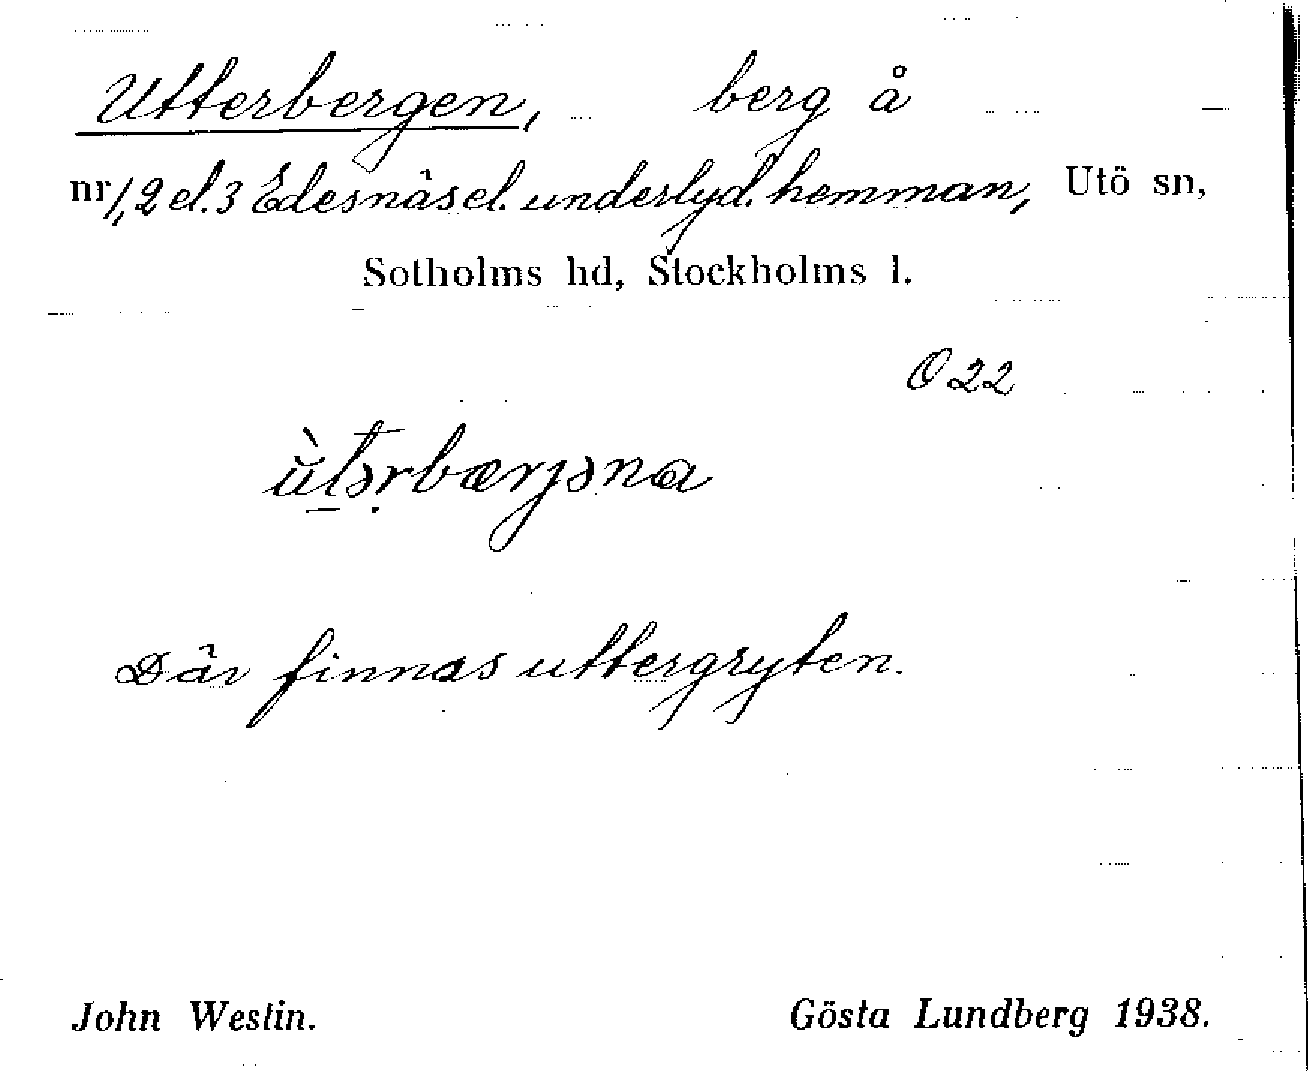 Utterbergen, berg å
nr 1, 2 el. 3 Edesnäs el. underlyd. hemman, Utö sn,
Sotholms hd, Stockholms l.
O 22
ùtərbærjəna
Där finnas uttergryten.
John Westin. Gösta Lundberg 1938.